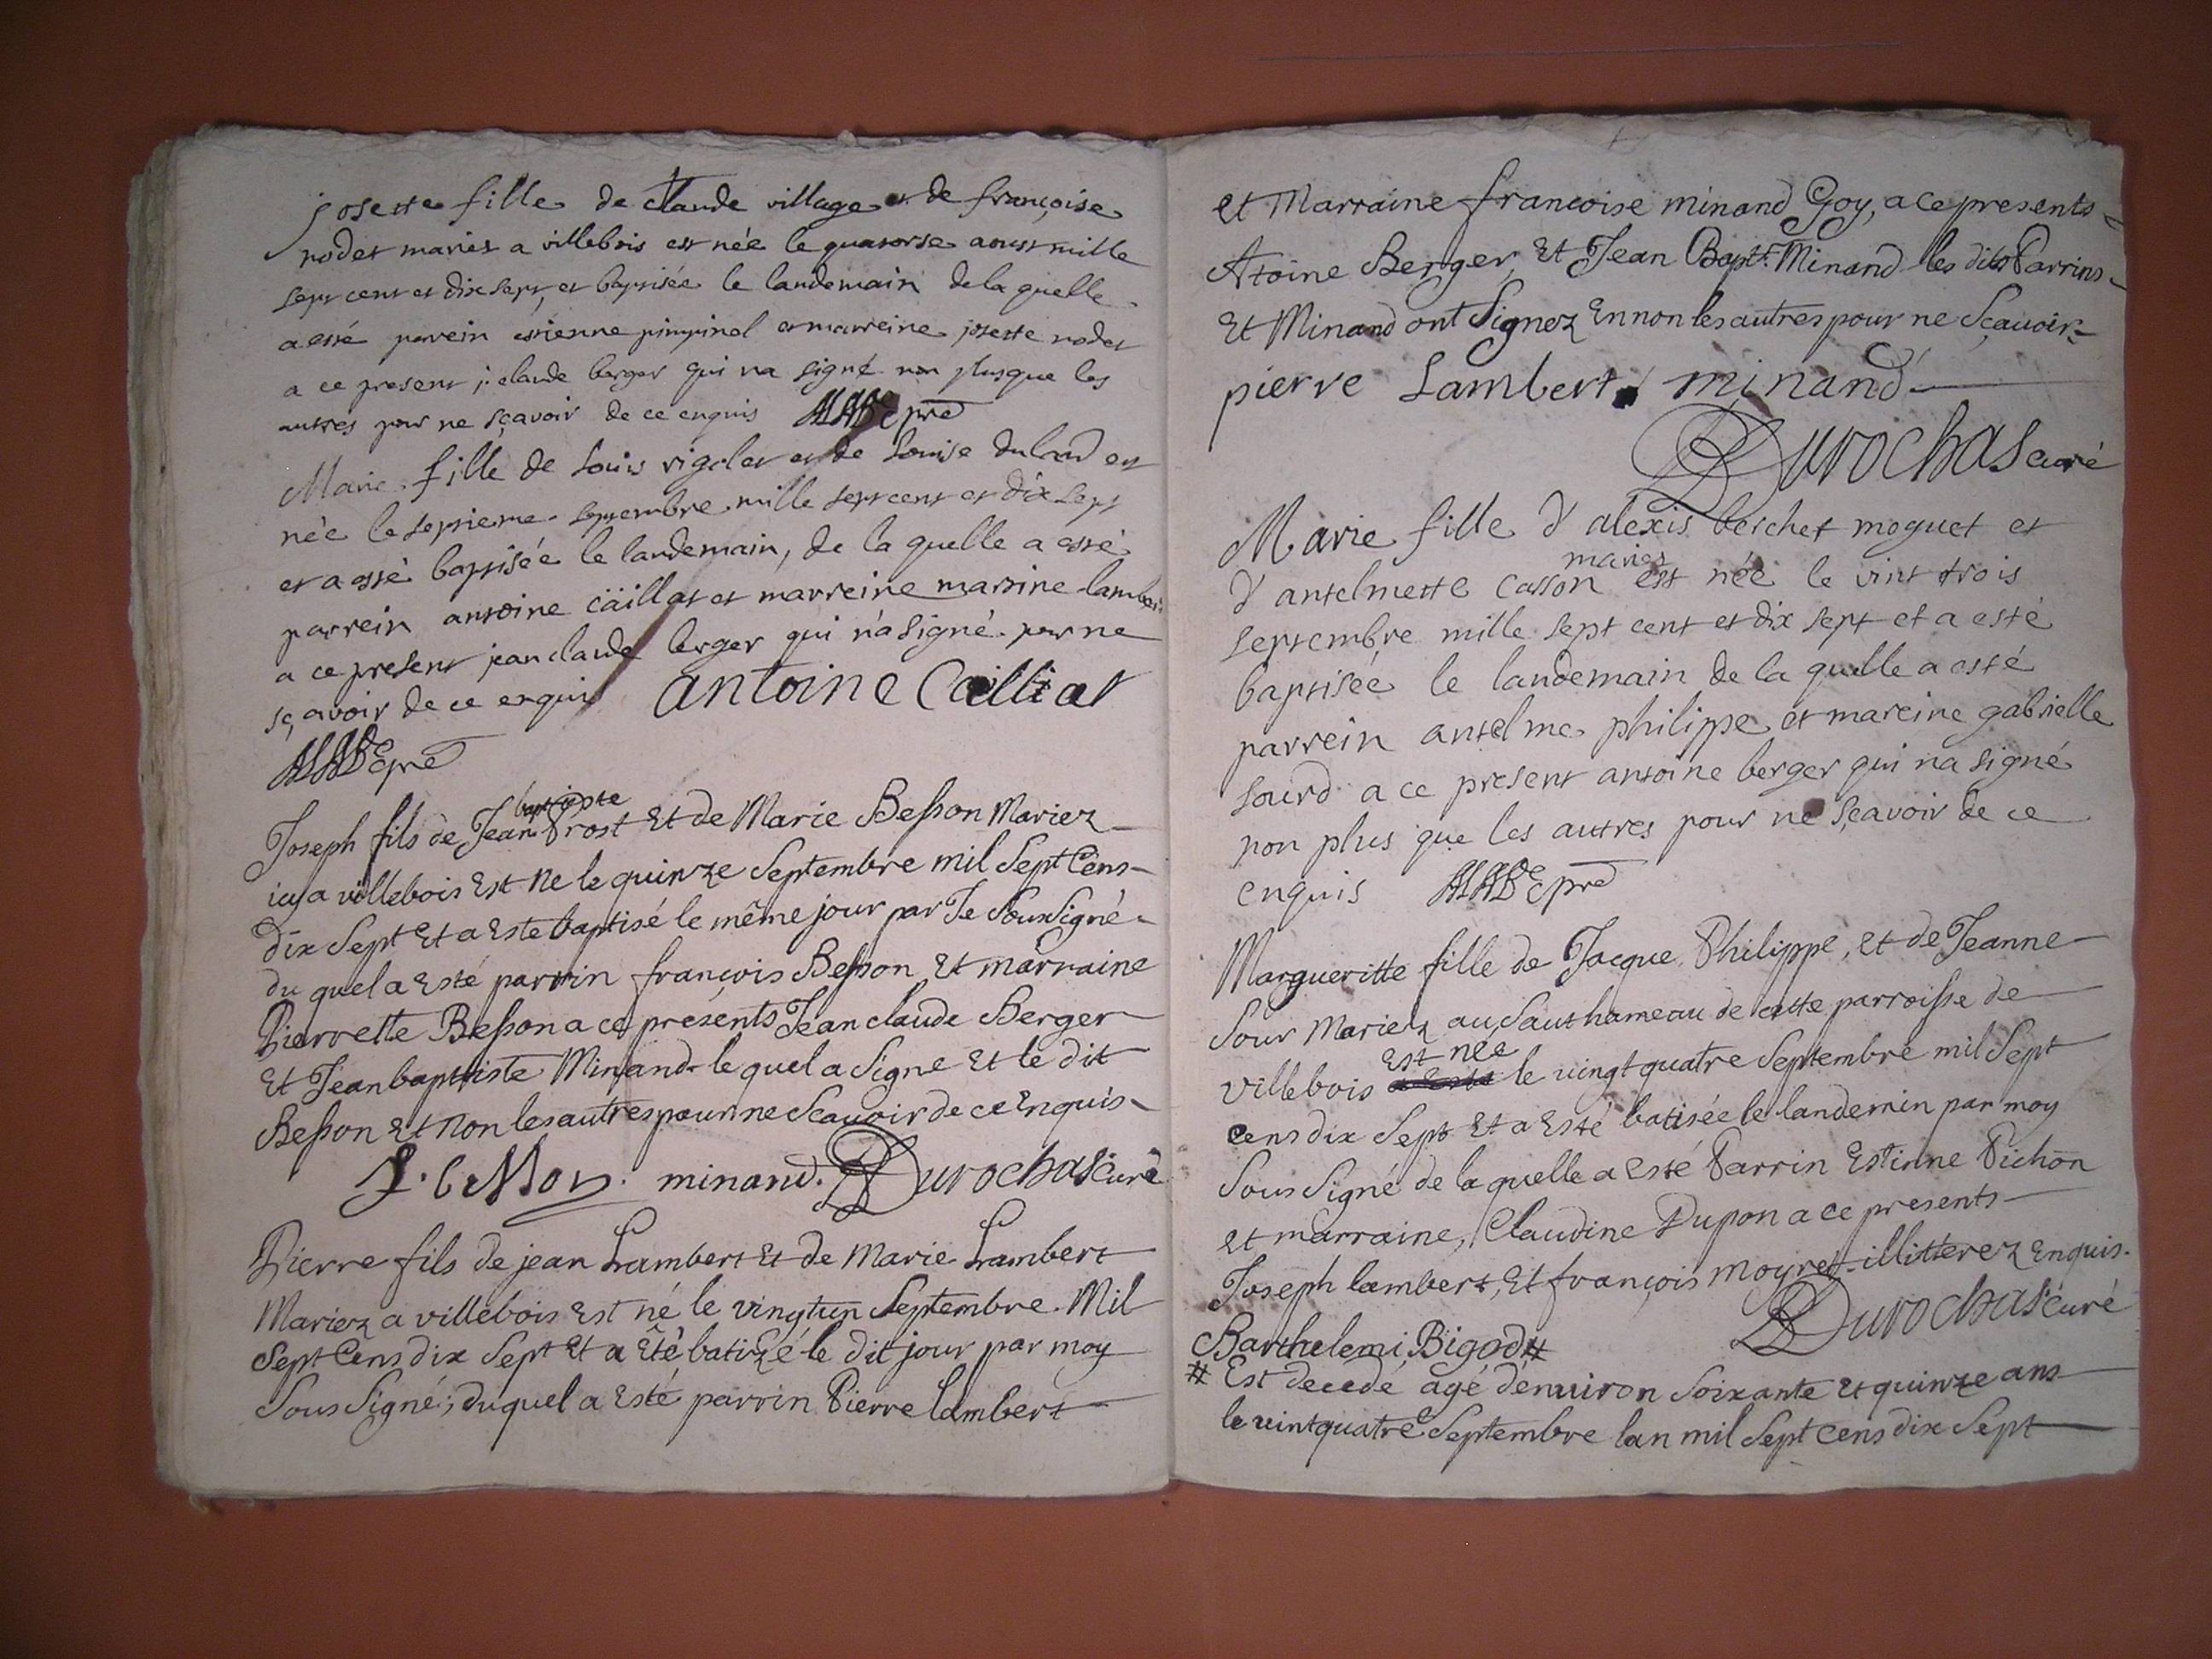 josette fille de claude village et de françoise
rodet mariez a villebois est née le quatorse aoust mille
sept cent et dix sept, et baptisée le landemain de la quelle
a esté parein estienne pinpinel et marreine josette rodet
a ce present j. claude berger qui na signé non plus que les
autres pour ne sçavoir de ce enquis pre
Marie fille de Louis rigolet et de Louise dulard est
née le septieme septembre mille sept cent et dix sept
et a esté baptisée le landemain, de la quelle a esté
parrein antoine caillat et marreine martine lambert
a ce present jean claude berger qui n'a signé pour ne
sçavoir de ce enquis antoine Calliat
pre
baptiste
Joseph fils de Jean Prost Et de Marie Besson Mariez
icy a villebois Est Ne le quinze Septembre mil Sept Cens
dix Sept Et a Este baptisé le même jour par Je Soussigné
du quel a Esté parrin françois Besson Et marraine
Pierrette Besson a ce présents Jean claude Berger
Et Jean baptiste Minand le quel a Signe Et le dit
Besson Et Non les autres pour ne Scauoir de ce Enquis
minand. Durochas curé
Pierre fils de jean Lambert Et de Marie Lambert
Mariez a villebois Est né le vingtun Septembre Mil
Sept Cens dix Sept Et a Eté batizé le dit jour par moy
Sous Signé, duquel a Esté parrin Pierre lambert
et Marraine francoise minand Goy, a ce presents
Atoine Berger, Et Jean Bapt. Minand les dits Parrins
Et Minand ont Signez En non les autres pour ne Sçauoir
pierre Lambert minand
Durochas curé
Marie fille d'alexis berchet moguet et
maries
d'antelmette Casson est née le vint trois
septembre mille sept cent et dix sept et a esté
baptisée le landemain de la quelle a esté
parrein antelme philippe et mareine gabrielle
sourd a ce present antoine berger qui na signé
non plus que les autres pour ne sçavoir de ce
enquis pre
Margueritte fille de Jacque Philippe, Et de Jeanne
Sour Mariez au Saut hameau de cette parroisse de
Est née
villebois le vingt quatre Septembre mil Sept
Cens dix Sept Et a Esté batisée le landemin par moy
Sous Signé de la quelle a Esté Parrin Estinne Pichon
Et marraine, Claudine Dupon a ce presents
Joseph lambert, Et françois moyret illitterez Enquis.
Durochas curé
Barthelemi Bigod #
# Est decedé agé d'enuiron Soixante Et quinze ans
le vintquatre Septembre lan mil Sept cens dix Sept